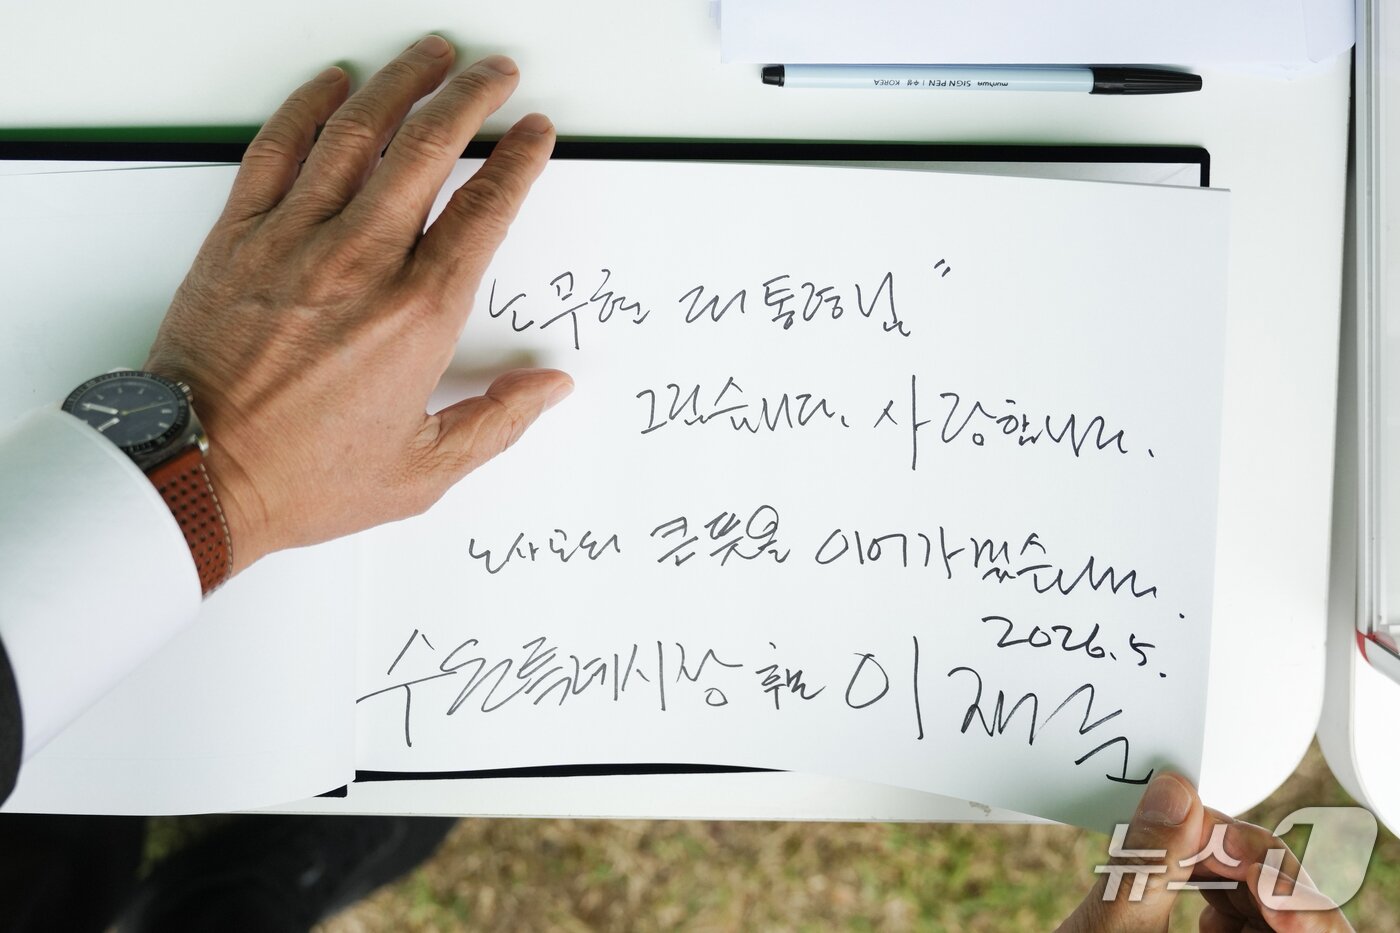 munhwa SIGN PEN | 수성 KOREA
노무현 대통령님"
그립습니다. 사랑합니다.
노사모의 큰 뜻을 이어가겠습니다.
2026. 5.
수원특례시장 후보 이재준
뉴스1